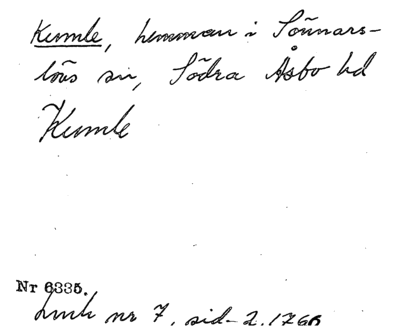 Kumle, hemman i Sönnars-
lövs sn, Södra Åsbo hd
Kumle
Nr 6335.
nr 7, sid- 2. 1766